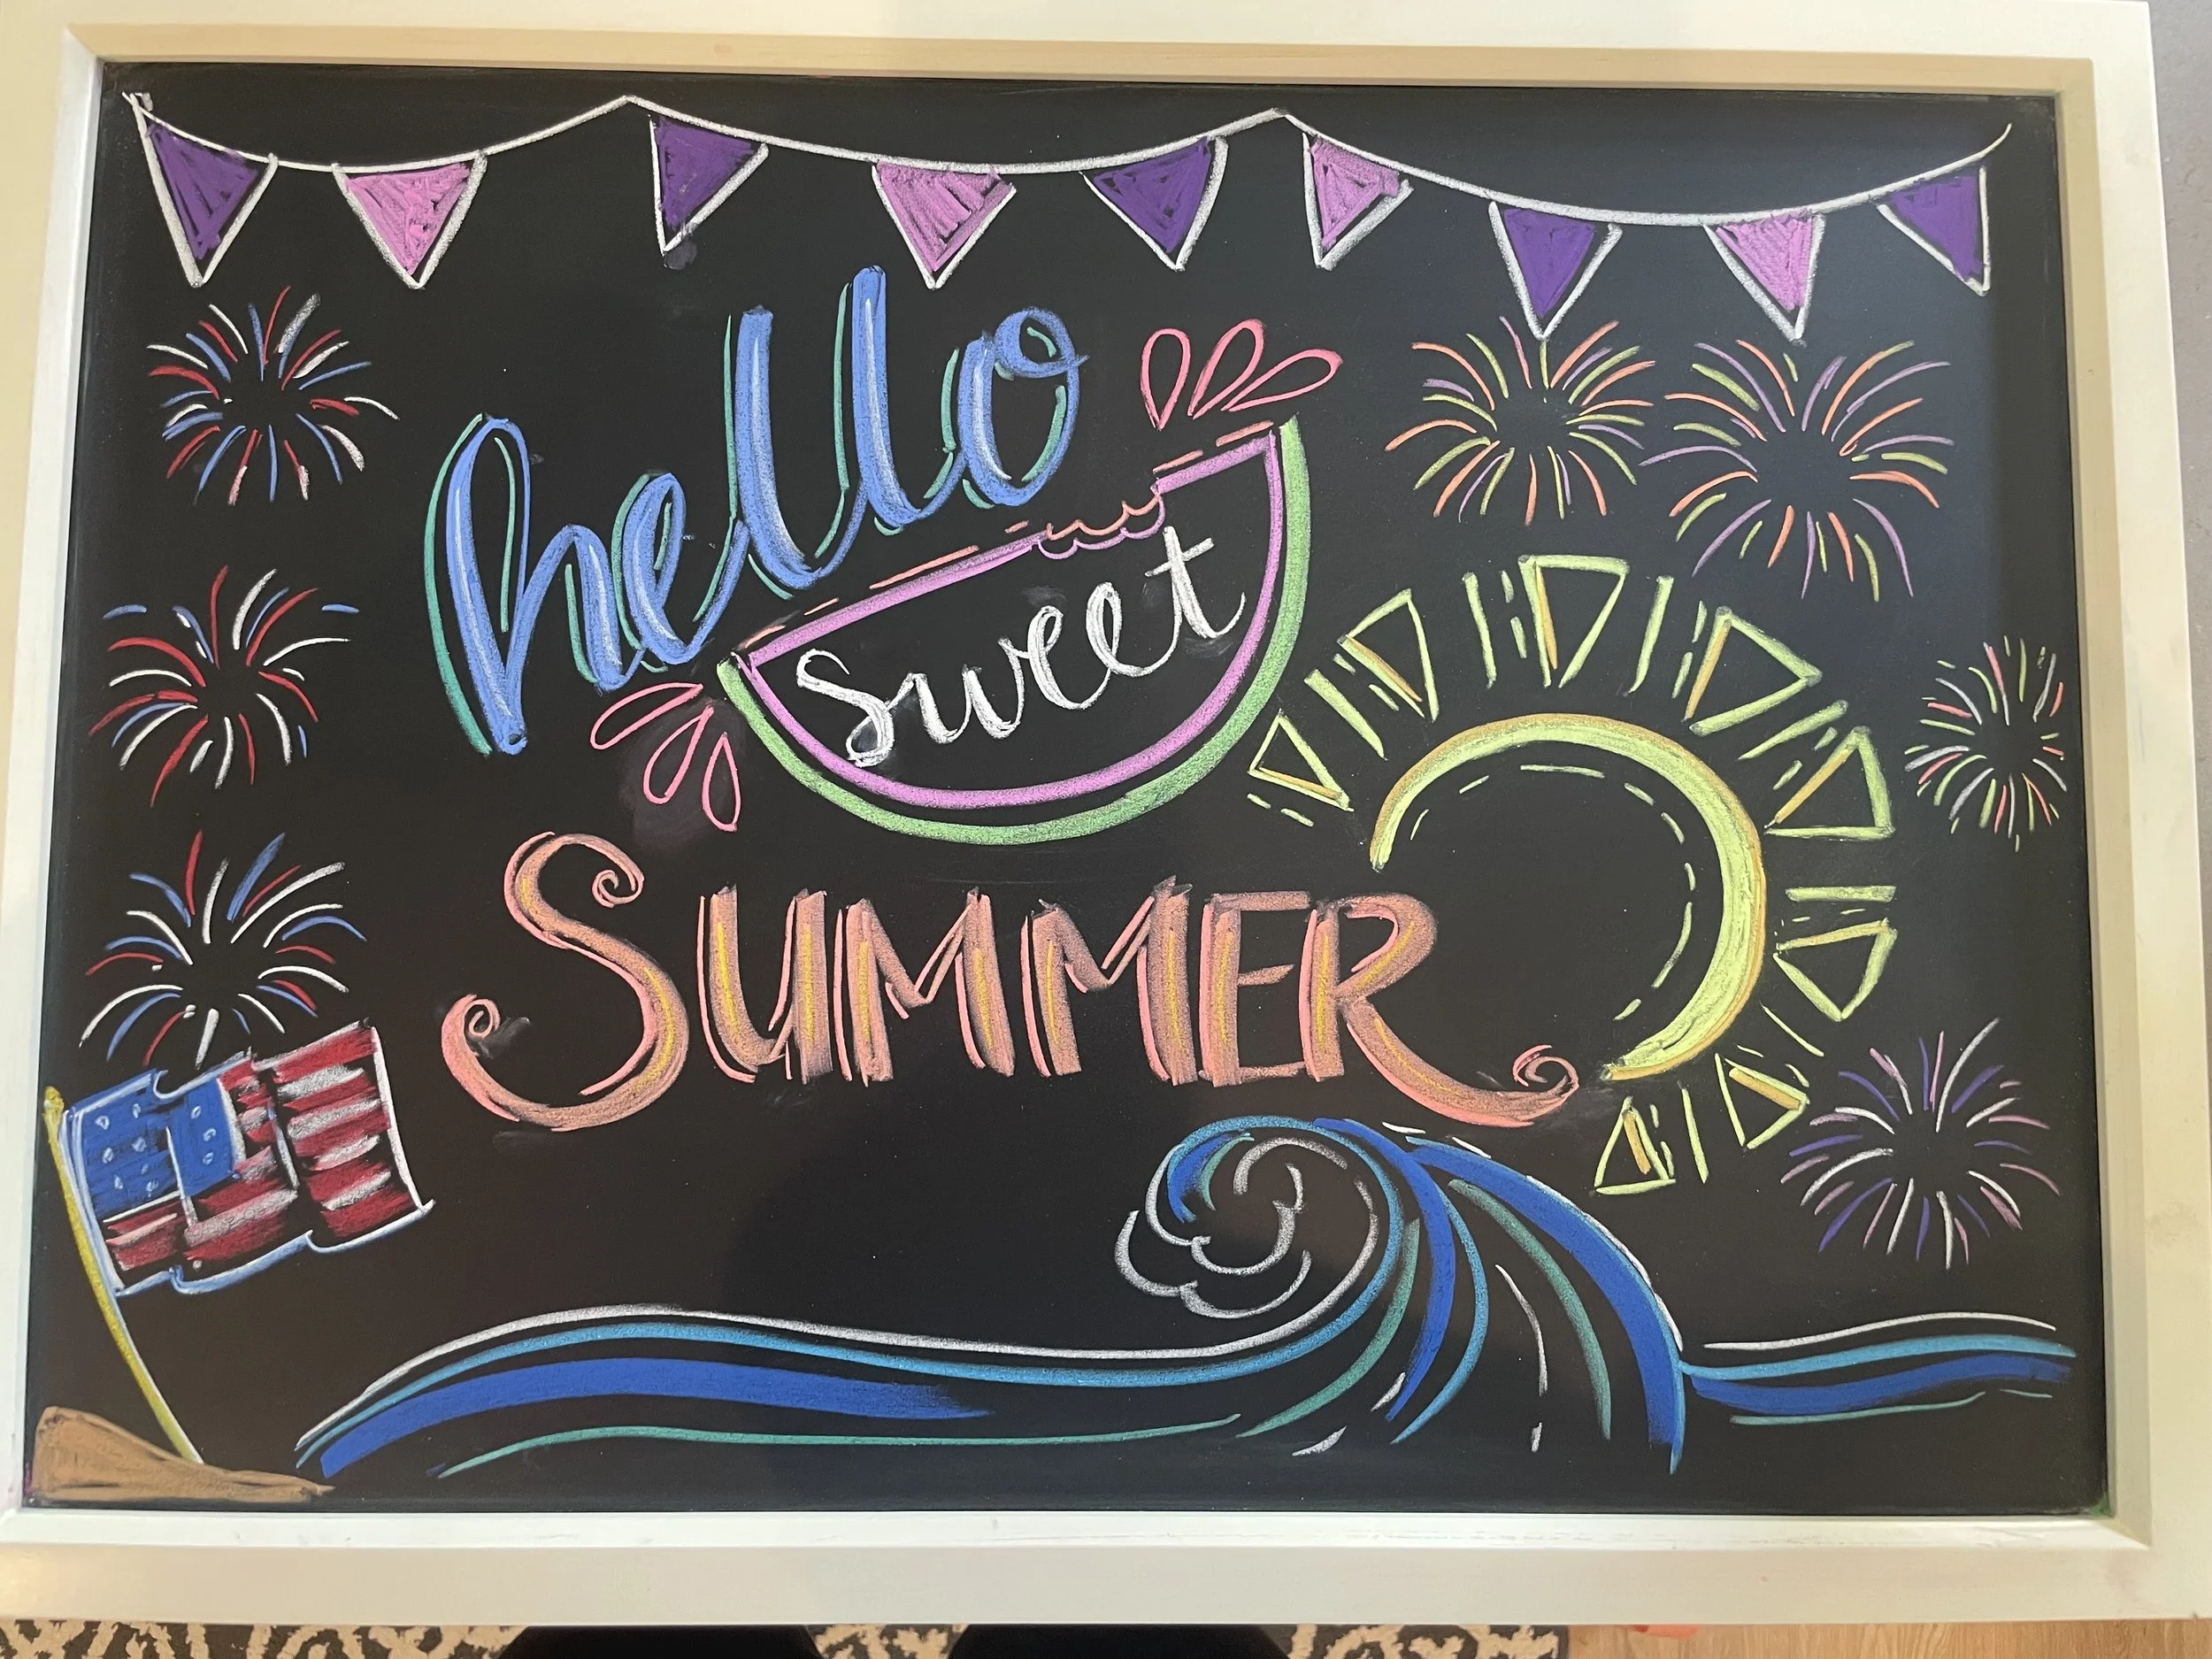 hello
sweet
SUMMER